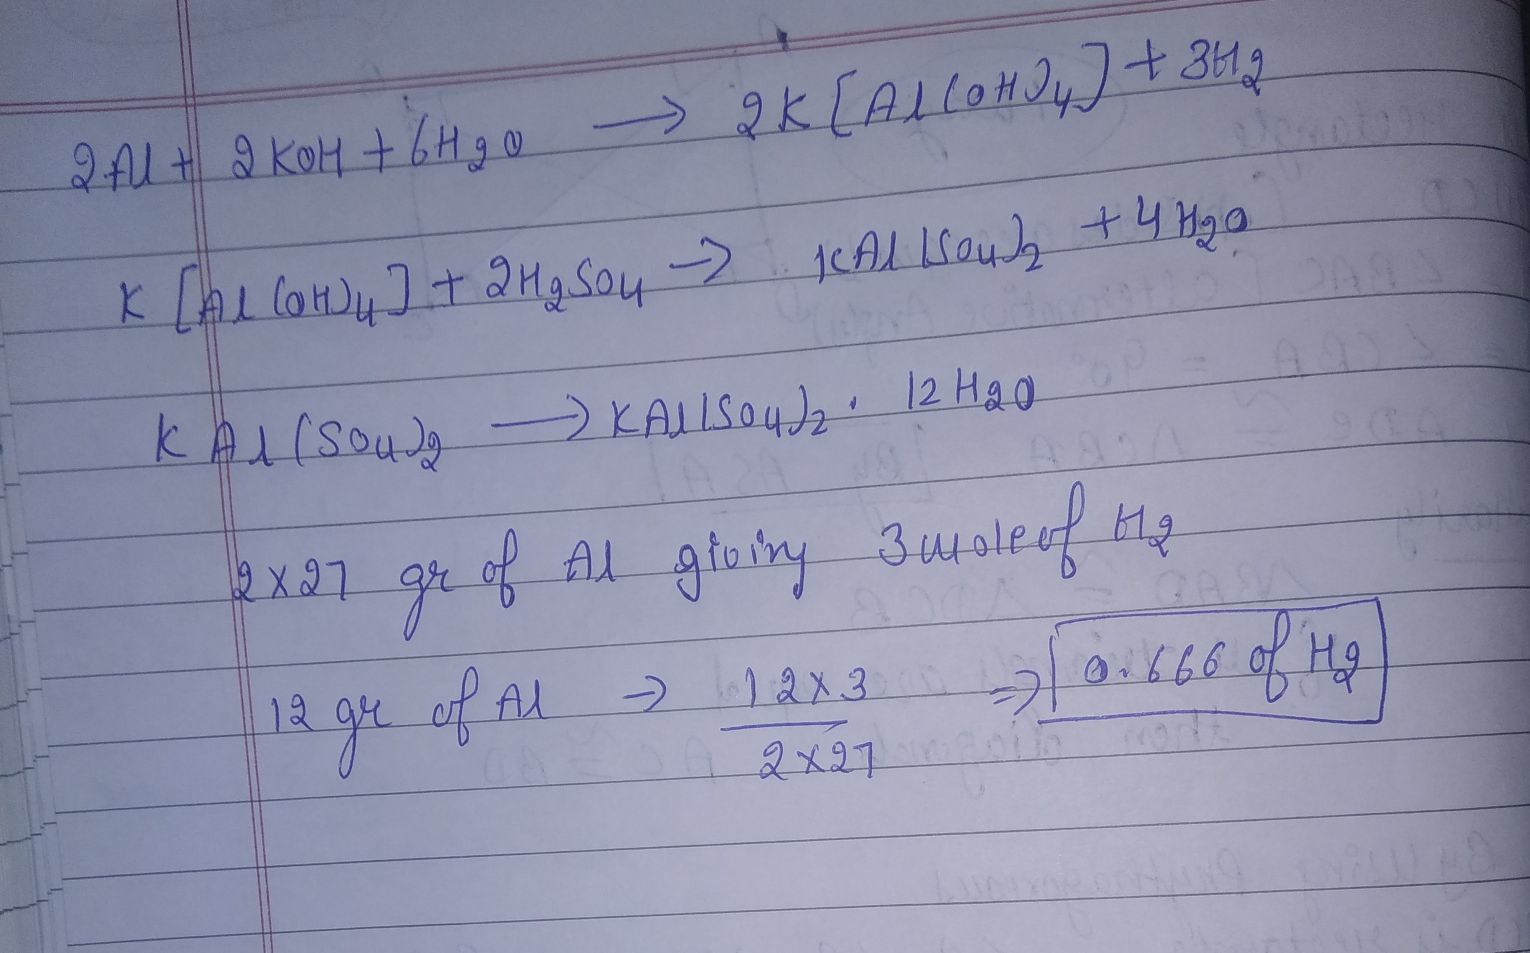 2Al + 2KOH + 6H2O → 2K[Al(OH)4] + 3H2
K[Al(OH)4] + 2H2SO4 → KAl(SO4)2 + 4H2O
KAl(SO4)2 → KAl(SO4)2 · 12H2O
2×27 gr of Al giving 3 mole of H2
12 gr of Al → 12×3 / 2×27 ⇒ 0.666 of H2